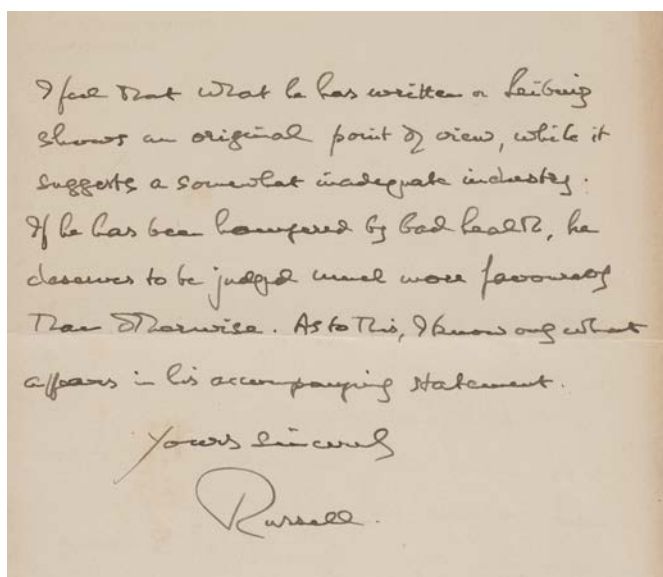 I feel that what he has written on Leibniz
shows an original point of view, while it
suggests a somewhat inadequate industry.
If he has been hampered by bad health, he
deserves to be judged much more favourably
than otherwise. As to this, I know only what
appears in his accompanying statement.
Yours sincerely
Russell.